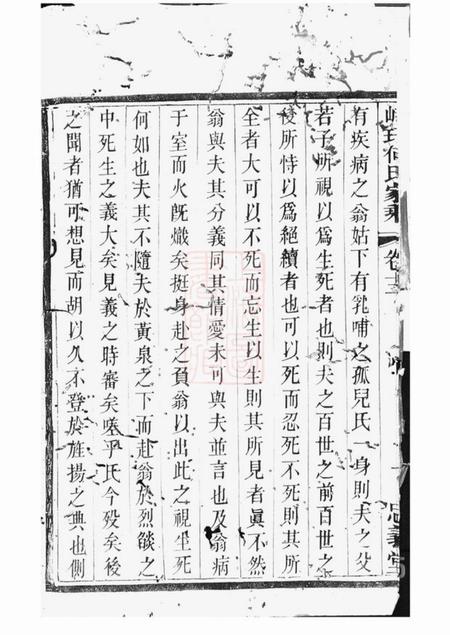 何氏家乘
卷十三
忠義堂
有疾病之翁姑下有乳哺之孤兒氏一身則夫之父
若子所視以爲生死者也則夫之百世之前百世之
後所恃以爲絕續者也可以死而忍死不死則其所
全者大可以不死而忘生以生則其所見者眞不然
翁與夫其分義同其情愛未可與夫並言也及翁病
于室而火旣熾矣挺身赴之負翁以出此之視生死
何如也夫其不隨夫於黃泉之下而赴翁於烈燄之
中死生之義大矣見義之時審矣嗟乎氏今歿矣後
之聞者猶可想見而胡以久不登於旌揚之典也側